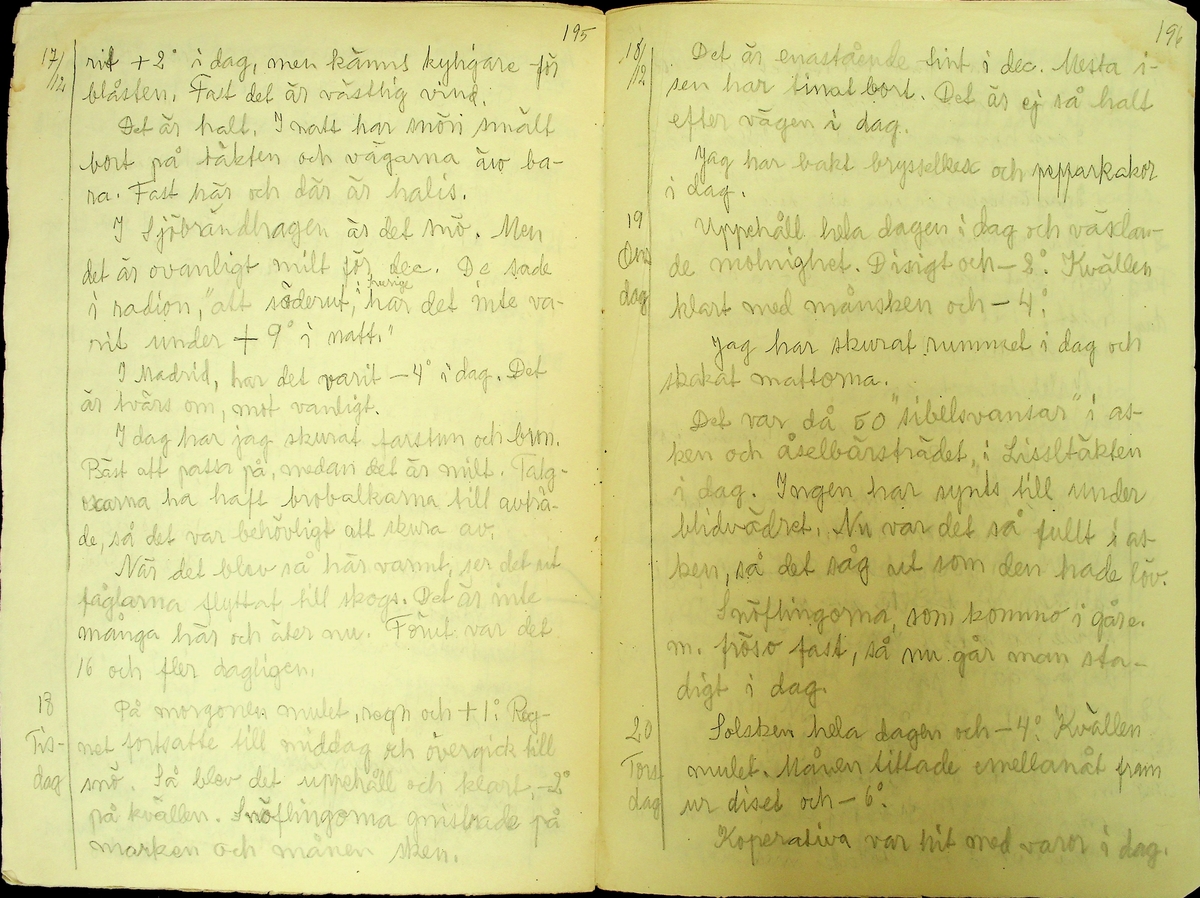 195
17/12 rit +2° i dag, men känns kyligare för
blåsten. Fast det är västlig vind.
Det är halt. I natt har snön smält
bort på täkten och vägarna äro ba-
ra. Fast här och där är halis.
I Sjöbrändhagen är det snö. Men
det är ovanligt milt för dec. De sade
i radion, "att söderut, i Sverige har det inte va-
rit under +9° i natt."
I Madrid, har det varit -4° i dag. Det
är tvärs om, mot vanligt.
I dag har jag skurat farstun och bron.
Bäst att passa på, medan det är milt. Talg-
oxarna ha haft brobalkarna till avträ-
de, så det var behövligt att skura av.
När det blev så här varmt, ser det ut
fåglarna flyttat till skogs. Det är inte
många här och äter nu. Förut var det
16 och fler dagligen.
18 Tis-dag På morgonen mulet, regn och +1°. Reg-
net fortsatte till middag och övergick till
snö. Så blev det uppehåll och klart, -2°
på kvällen. Snöflingorna gnistrade på
marken och månen sken.
196
18/12 Det är enastående fint i dec. Mesta i-
sen har tinat bort. Det är ej så halt
efter vägen i dag.
Jag har bakt brysselkex och pepparkakor
i dag.
19 Ons dag Uppehåll hela dagen i dag och växlan-
de molnighet. Disigt och -2°. Kvällen
klart med månsken och -4°.
Jag har skurat rummet i dag och
skakat mattorna.
Det var då 50 "sibelsvansar" i as-
ken och åselbärsträdet, i Lissltäkten
i dag. Ingen har synts till under
blidvädret. Nu var det så fullt i as-
ken, så det såg ut som den hade löv.
Snöflingorna, som kommo i går e.
m. fröso fast, så nu går man sta-
digt i dag.
20 Tors dag Solsken hela dagen och -4°. Kvällen
mulet. Månen tittade emellanåt fram
ur diset och -6°.
Koperativa var hit med varor i dag.